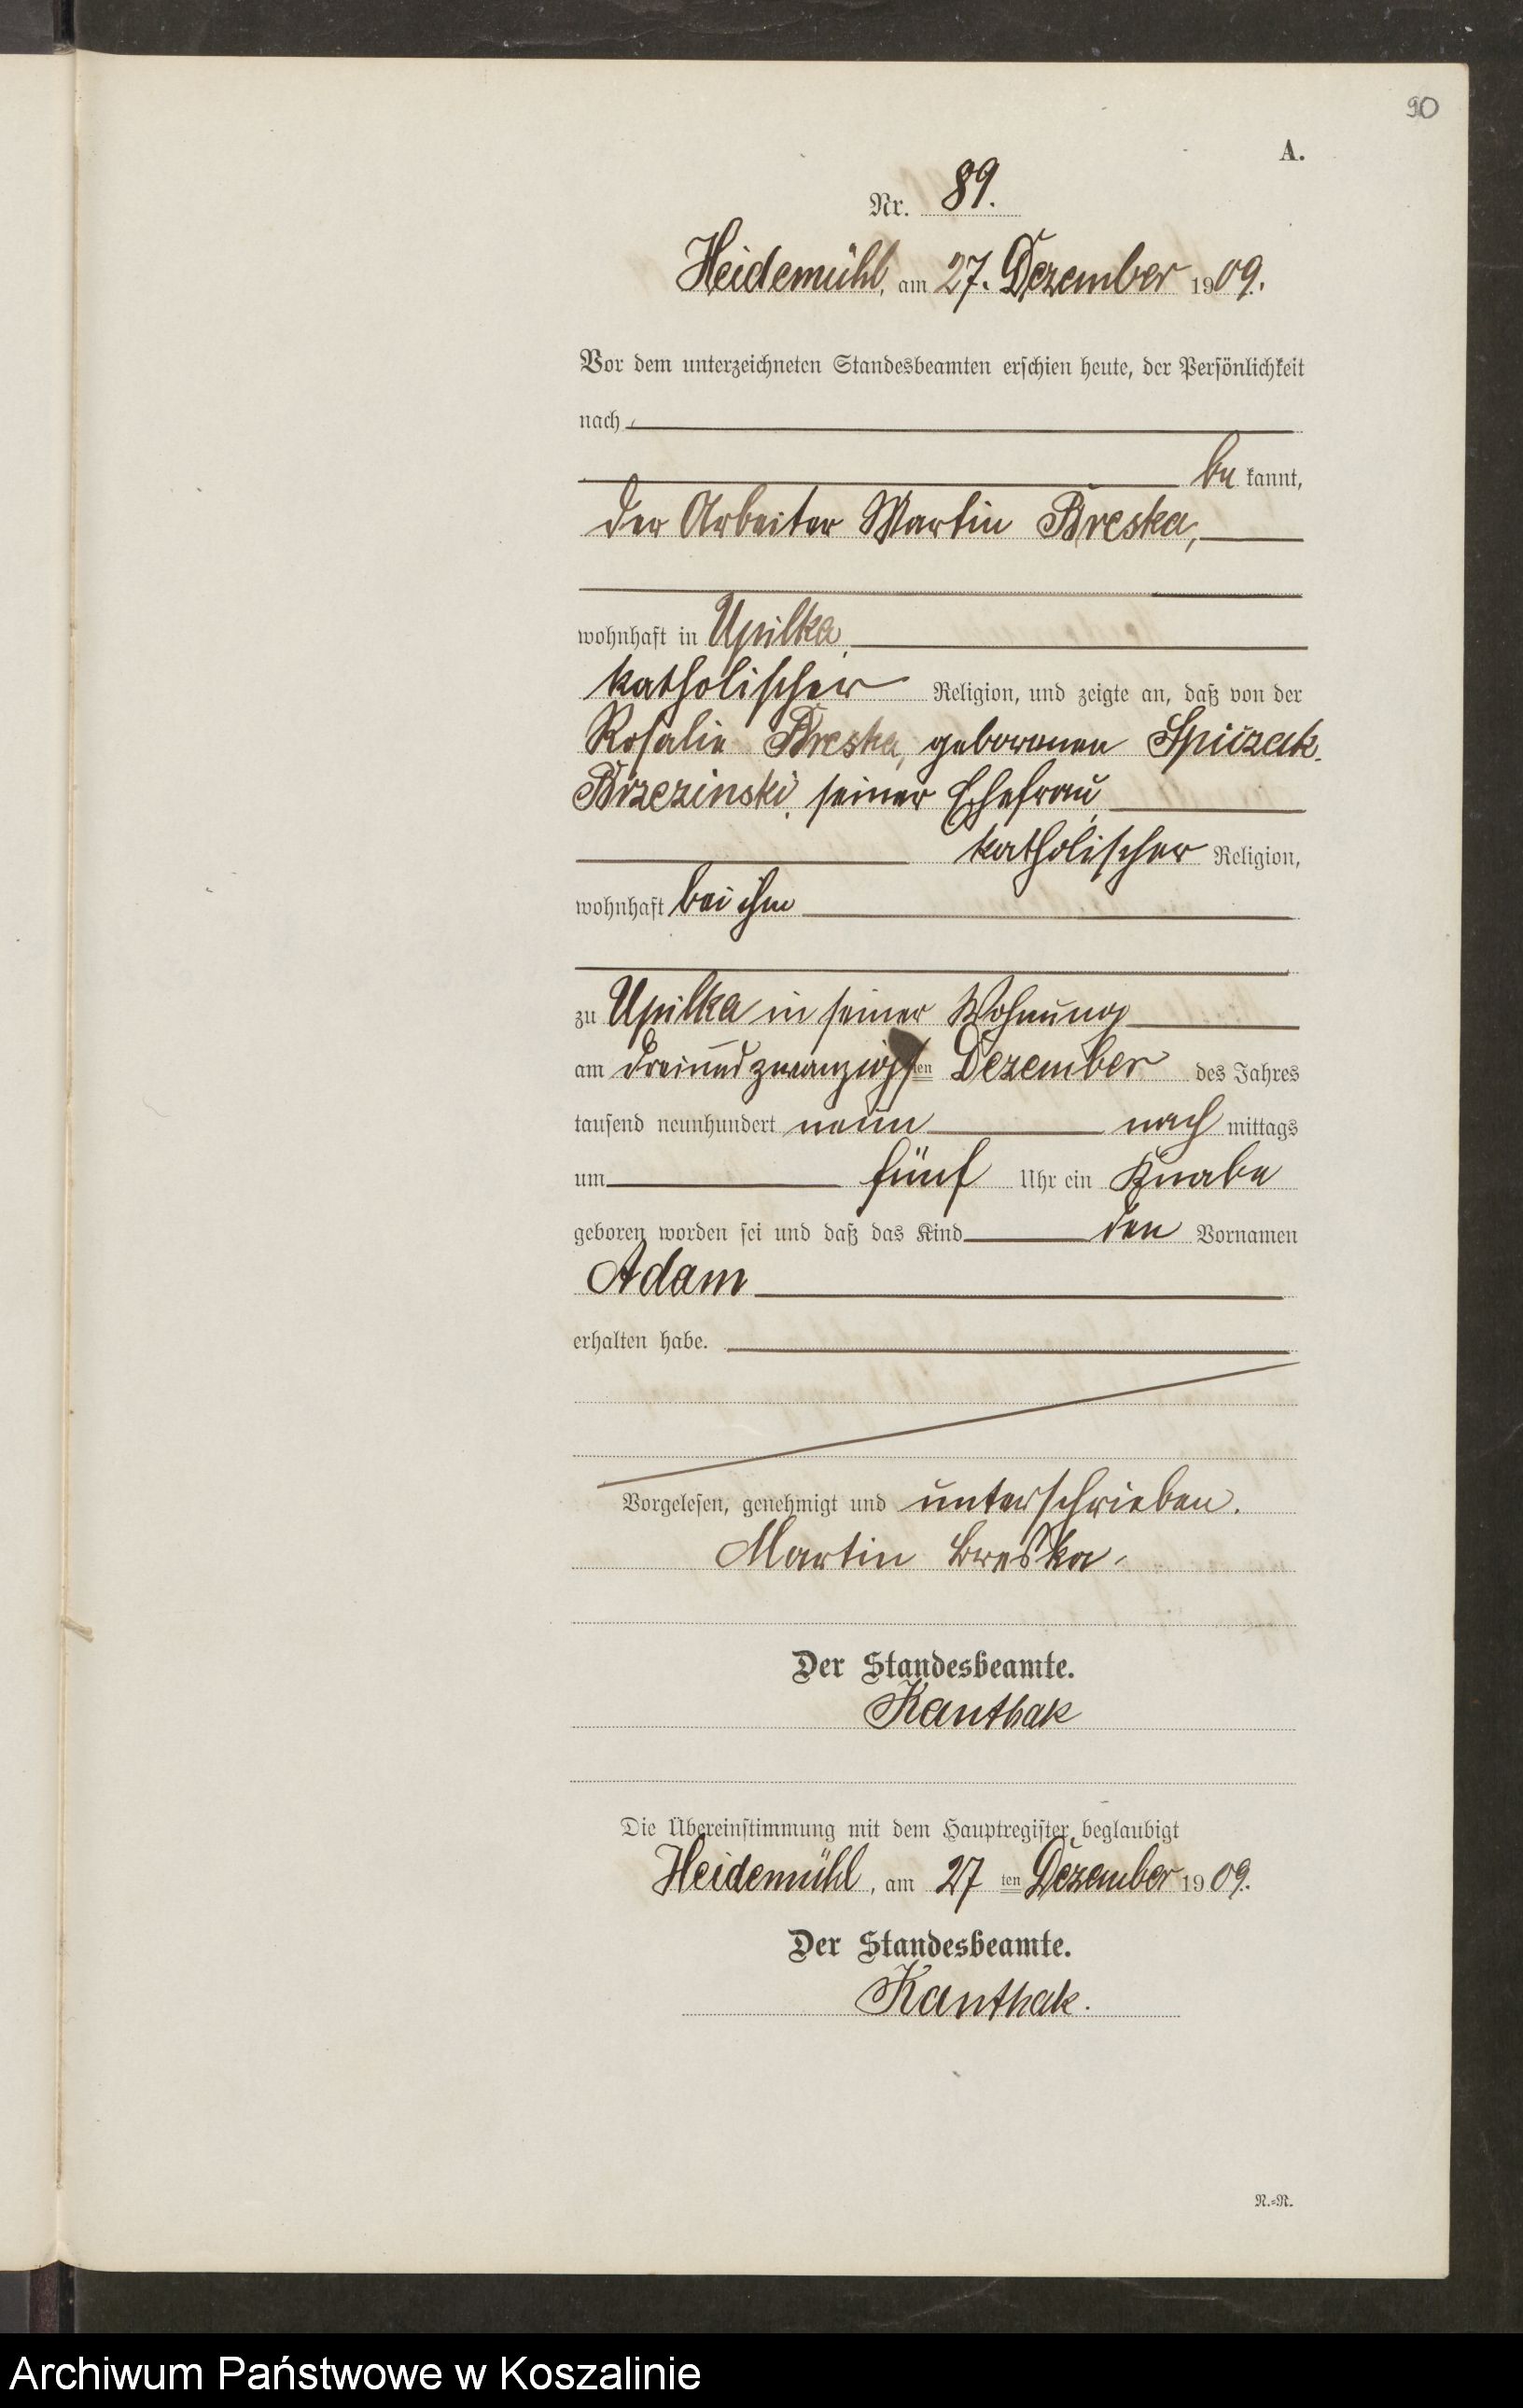 90
A.
Nr. 89.
Heidemühl, am 27. Dezember 1909.
Vor dem unterzeichneten Standesbeamten erschien heute, der Persönlichkeit
nach
be kannt,
der Arbeiter Martin Breska,
wohnhaft in Upilka,
katholischer Religion, und zeigte an, daß von der
Rosalie Breska, geborenen Spiczak
Brzezinski, seiner Ehefrau,
katholischer Religion,
wohnhaft bei ihm
zu Upilka in seiner Wohnung
am dreiundzwanzigsten Dezember des Jahres
tausend neunhundert neun nach mittags
um fünf Uhr ein Knabe
geboren worden sei und daß das Kind den Vornamen
Adam
erhalten habe.
Vorgelesen, genehmigt und unterschrieben.
Martin Breska.
Der Standesbeamte.
Kanthak
Die Übereinstimmung mit dem Hauptregister beglaubigt
Heidemühl, am 27 ten Dezember 1909.
Der Standesbeamte.
Kanthak.
N.=N.
Archiwum Państwowe w Koszalinie